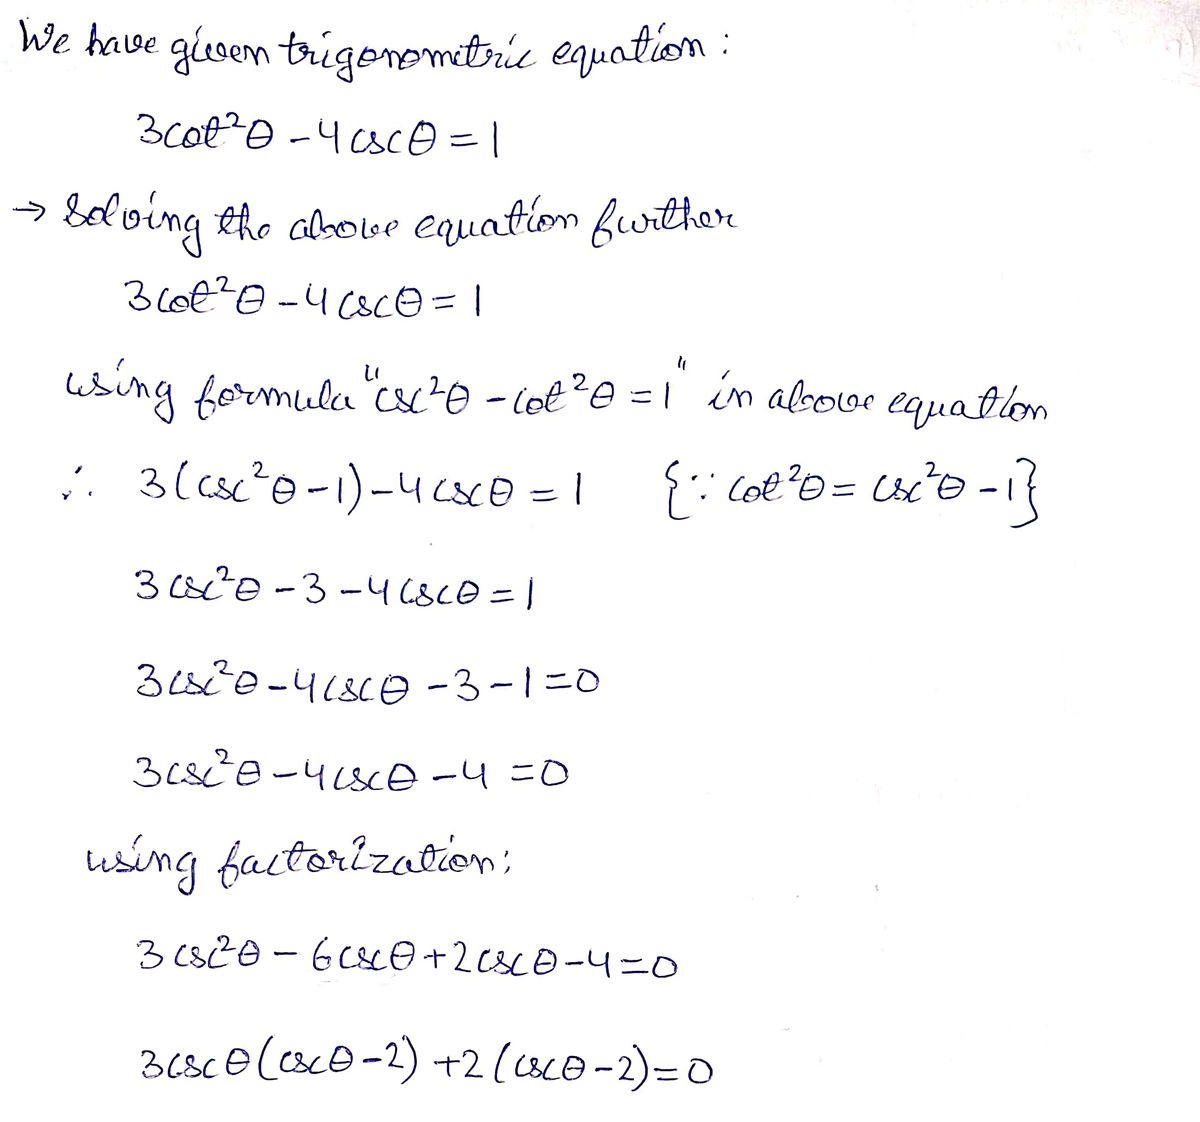 We have given trigonometric equation :
3cot²θ - 4cscθ = 1
→ Solving the above equation further
3cot²θ - 4cscθ = 1
using formula "csc²θ - cot²θ = 1" in above equation
∴ 3(csc²θ - 1) - 4cscθ = 1 {∵ cot²θ = csc²θ - 1}
3csc²θ - 3 - 4cscθ = 1
3csc²θ - 4cscθ - 3 - 1 = 0
3csc²θ - 4cscθ - 4 = 0
using factorization;
3csc²θ - 6cscθ + 2cscθ - 4 = 0
3cscθ(cscθ - 2) + 2(cscθ - 2) = 0